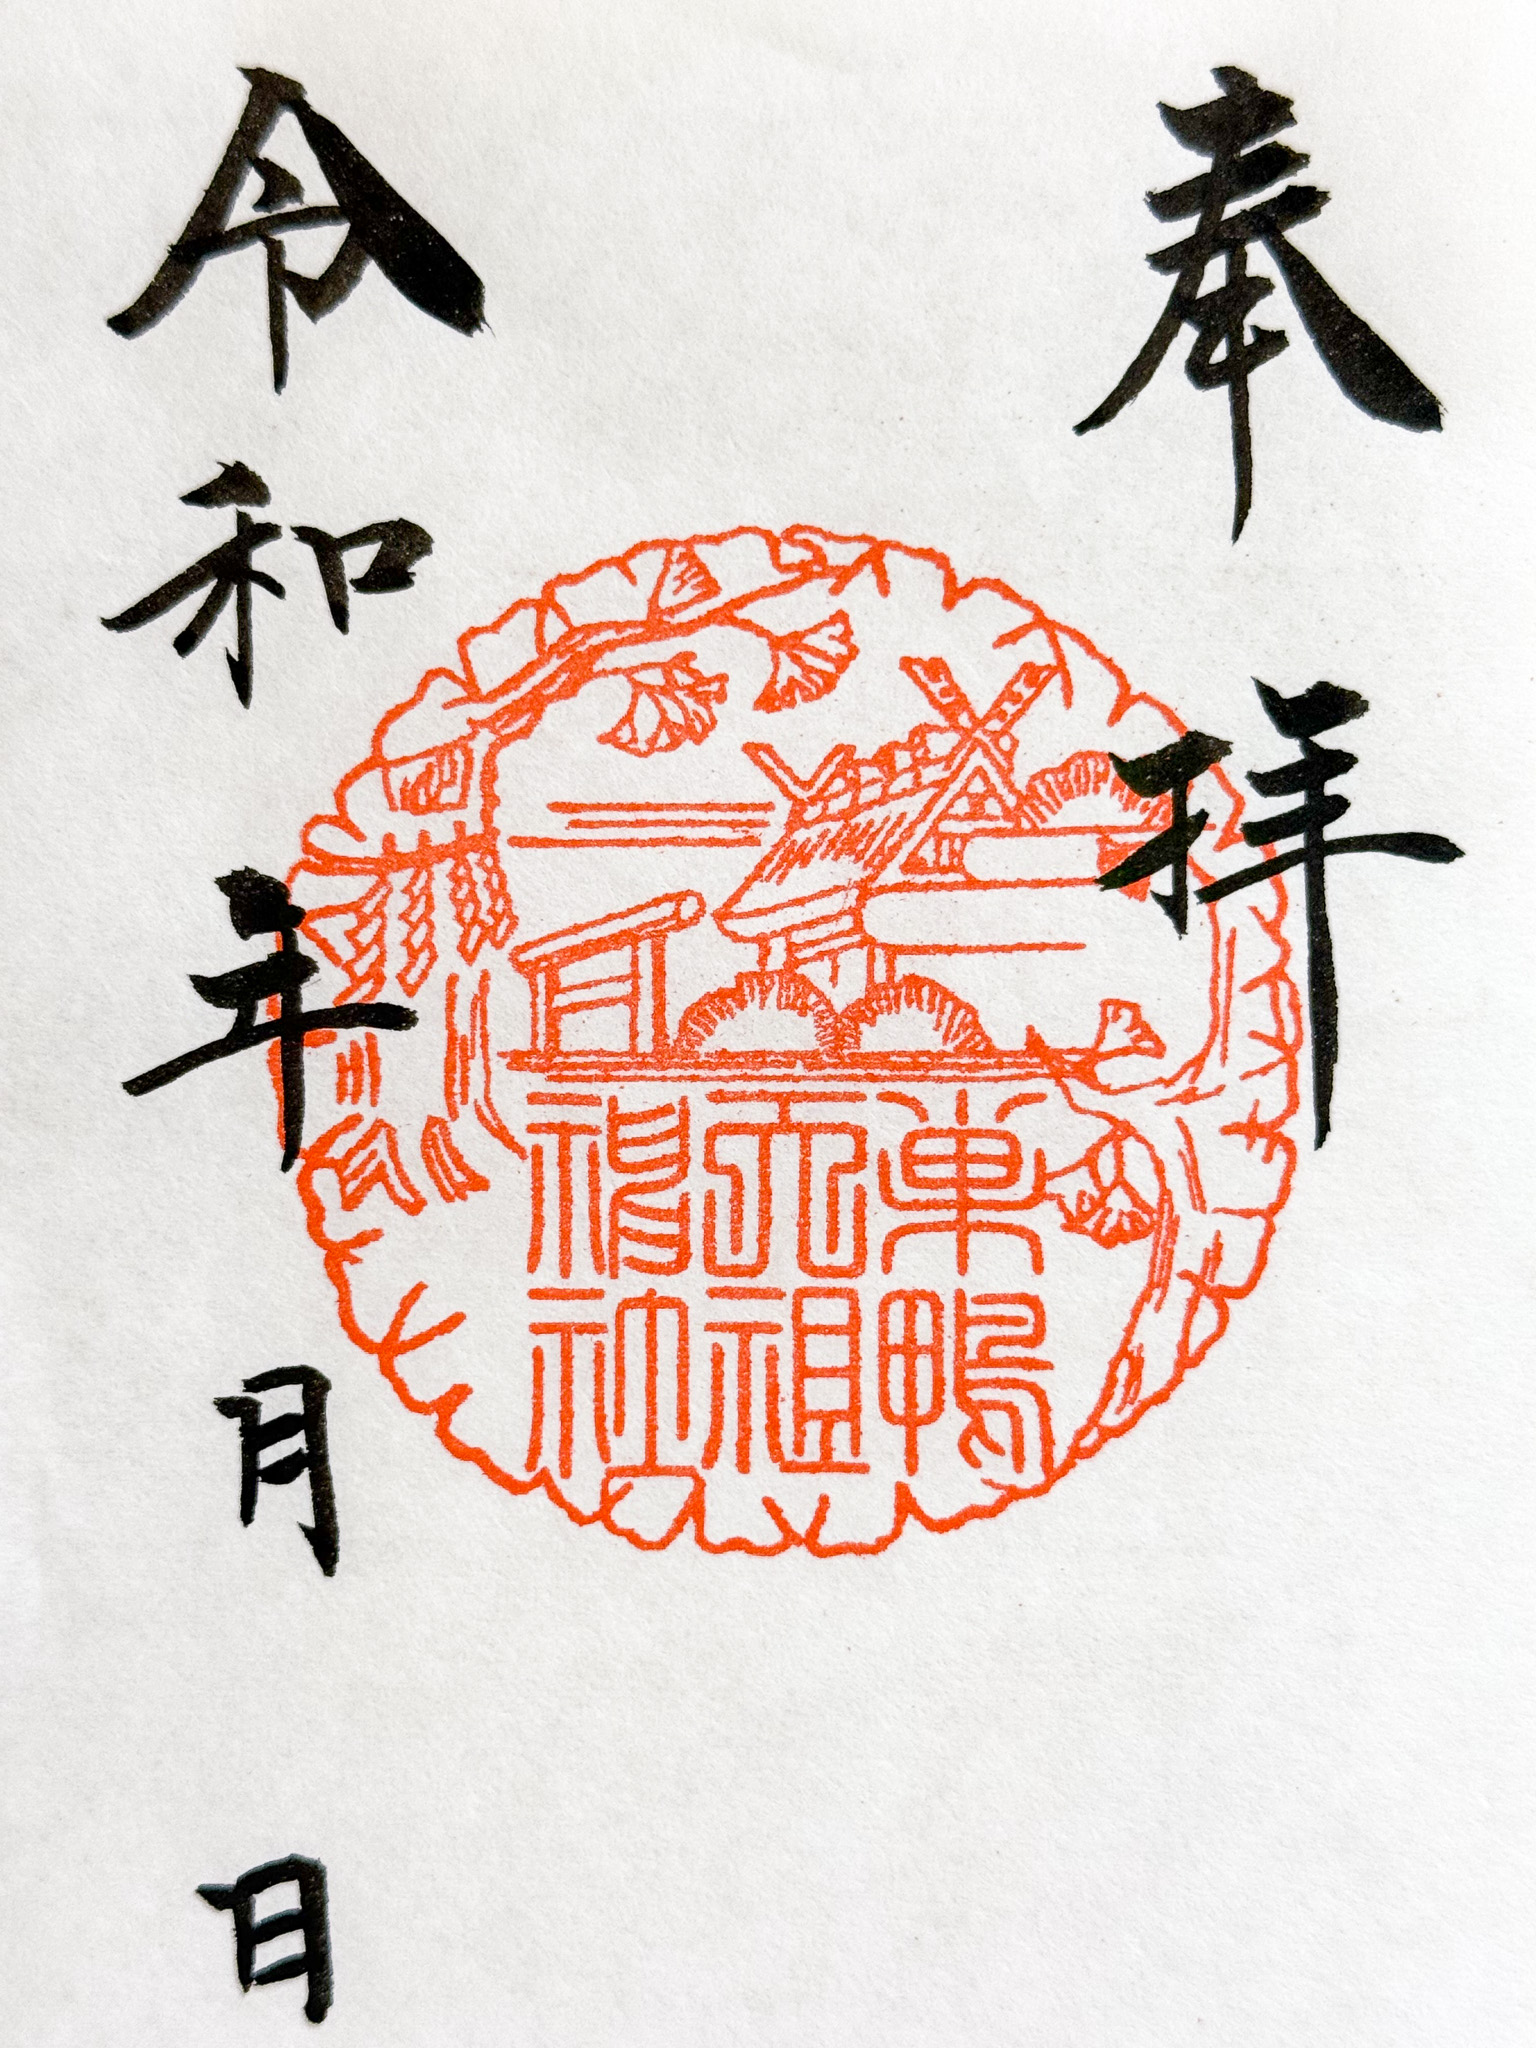 奉拝
巣鴨
天祖
神社
令和 年 月 日